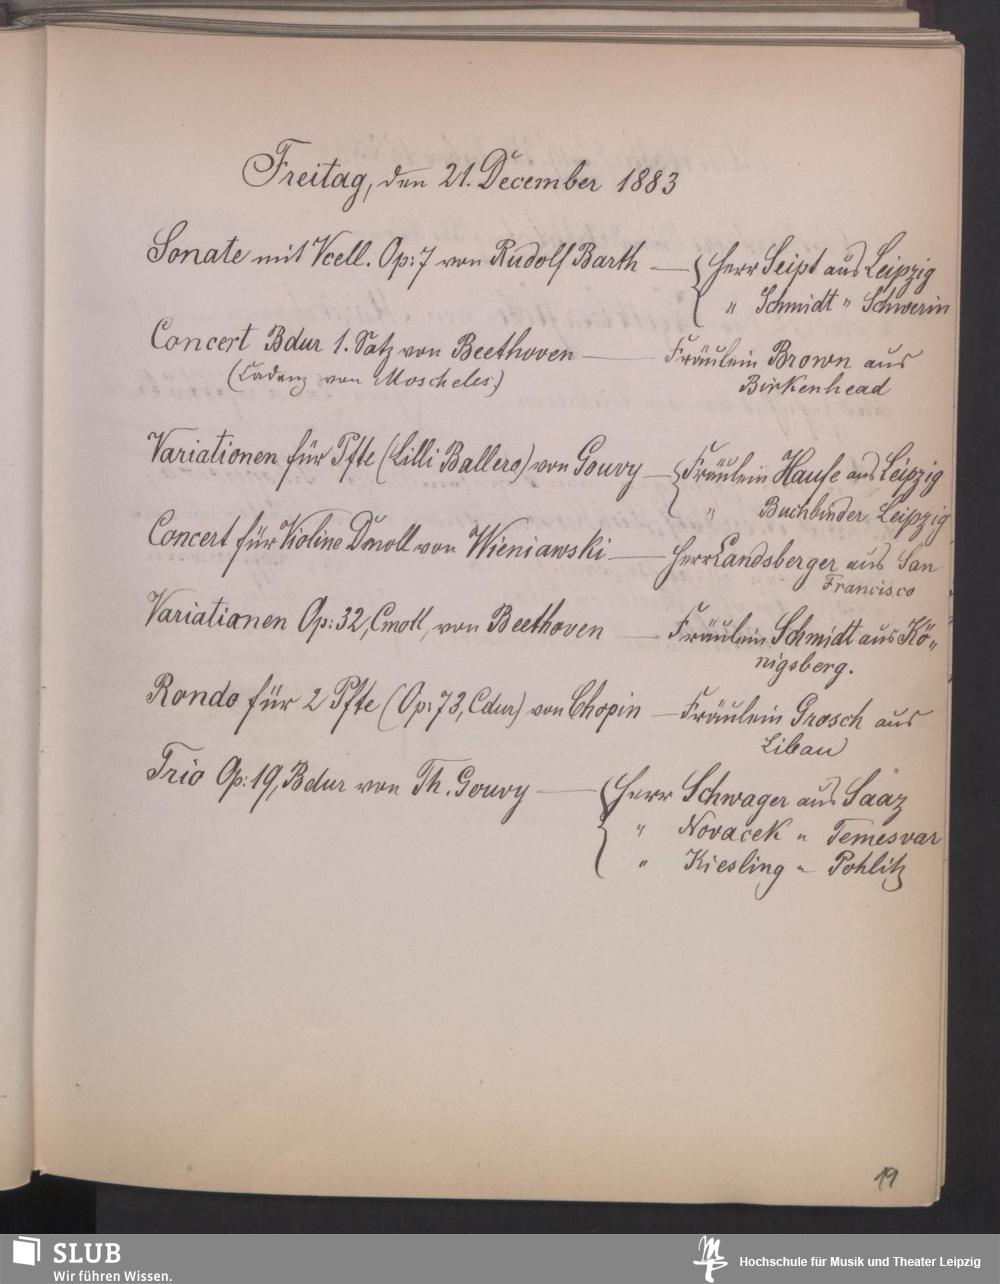 Freitag, den 21. December 1883
Sonate mit Vcell. Op: 7 von Rudolf Barth — Herr Seipt aus Leipzig
" Schmidt " Schwerin
Concert Bdur 1. Satz von Beethoven — Fräulein Brown aus
(Cadenz von Moscheles.) Birkenhead
Variationen für Pfte (Lilli Ballero) von Gouvy — Fräulein Haufe aus Leipzig
" Buchbinder Leipzig
Concert für Violine Dmoll von Wieniawski — Herr Landsberger aus San
Francisco
Variationen Op: 32, Cmoll, von Beethoven — Fräulein Schmidt aus Kö-
nigsberg.
Rondo für 2 Pfte (Op: 73, Cdur) von Chopin — Fräulein Grosch aus
Libau
Trio Op: 19, Bdur von Th. Gouvy — Herr Schwager aus Saaz
" Novacek " Temesvar
" Kiesling " Pohlitz
19
SLUB
Wir führen Wissen.
Hochschule für Musik und Theater Leipzig